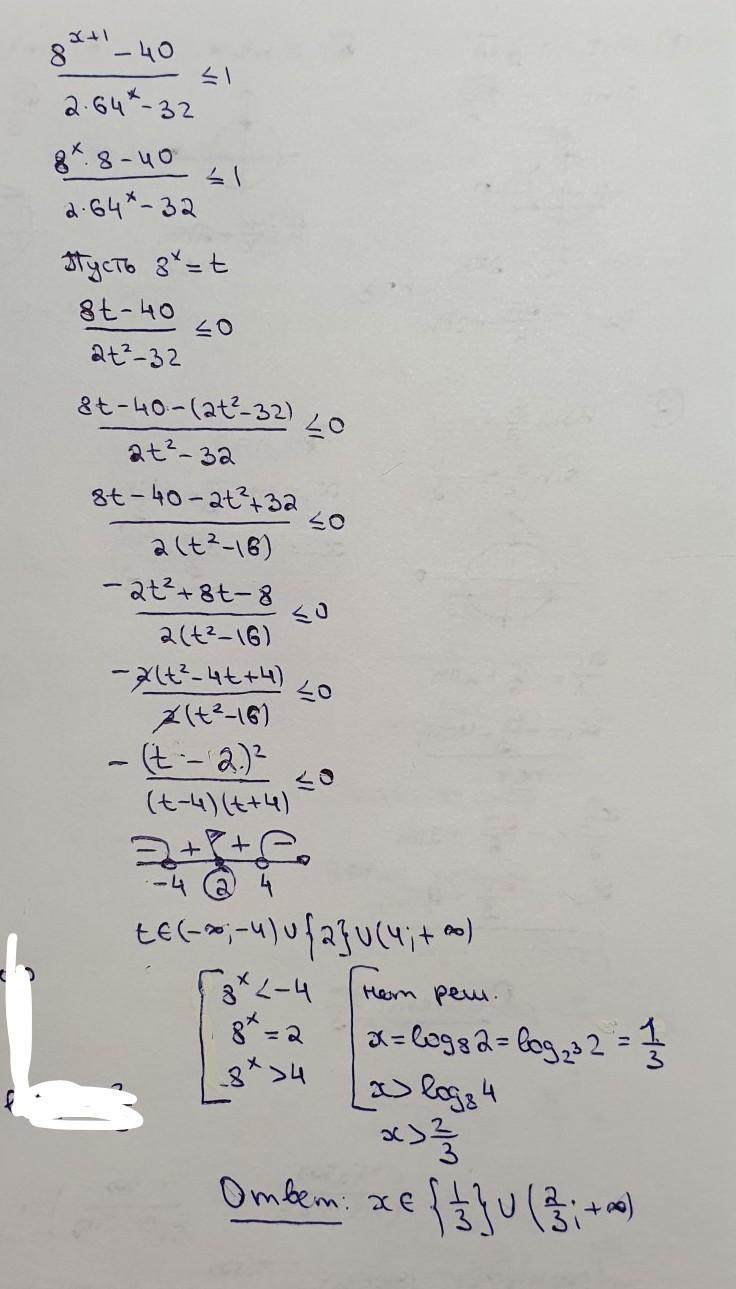 8^(x+1) − 40 / 2·64^x − 32 ≤ 1
8^x · 8 − 40 / 2·64^x − 32 ≤ 1
Пусть 8^x = t
8t − 40 / 2t² − 32 ≤ 0
8t − 40 − (2t² − 32) / 2t² − 32 ≤ 0
8t − 40 − 2t² + 32 / 2(t² − 16) ≤ 0
−2t² + 8t − 8 / 2(t² − 16) ≤ 0
−2(t² − 4t + 4) / 2(t² − 16) ≤ 0
−(t − 2)² / (t − 4)(t + 4) ≤ 0
− + + −
−4 2 4
t ∈ (−∞; −4) ∪ {2} ∪ (4; +∞)
[ 8^x < −4 [ нет реш.
8^x = 2 x = log₈2 = log_2³ 2 = 1/3
8^x > 4 x > log₈4
x > 2/3
Ответ: x ∈ {1/3} ∪ (2/3; +∞)